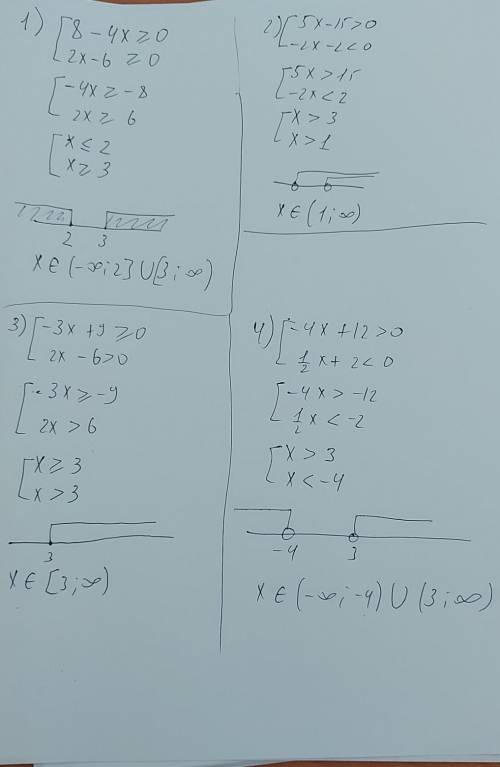 1) [ 8 - 4x ≥ 0
2x - 6 ≥ 0
[ -4x ≥ -8
2x ≥ 6
[ x ≤ 2
x ≥ 3
2 3
x ∈ (-∞; 2] ∪ [3; ∞)
2) [ 5x - 15 > 0
-2x - 2 < 0
[ 5x > 15
-2x < 2
[ x > 3
x > 1
x ∈ (1; ∞)
3) [ -3x + 9 ≥ 0
2x - 6 > 0
[ -3x ≥ -9
2x > 6
[ x ≥ 3
x > 3
3
x ∈ [3; ∞)
4) [ -4x + 12 > 0
1/2 x + 2 < 0
[ -4x > -12
1/2 x < -2
[ x > 3
x < -4
-4 3
x ∈ (-∞; -4) ∪ (3; ∞)